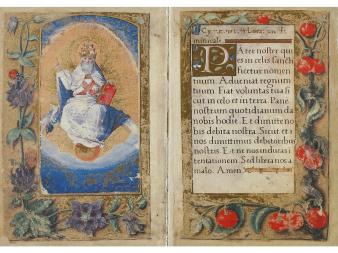 Pater noster qui
es in celis sancti
ficetur nomen
tuum. Adueniat regnum
tuum. Fiat voluntas tua
sicut in celo et in terra. Pané
nostrum quotidianum da
nobis hodie. Et dimitte no
bis debita nostra. Sicut et
nos dimittimus debitoribus
nostris. Et ne nos inducas i
tentationem. Sed libera nos a
malo. Amen